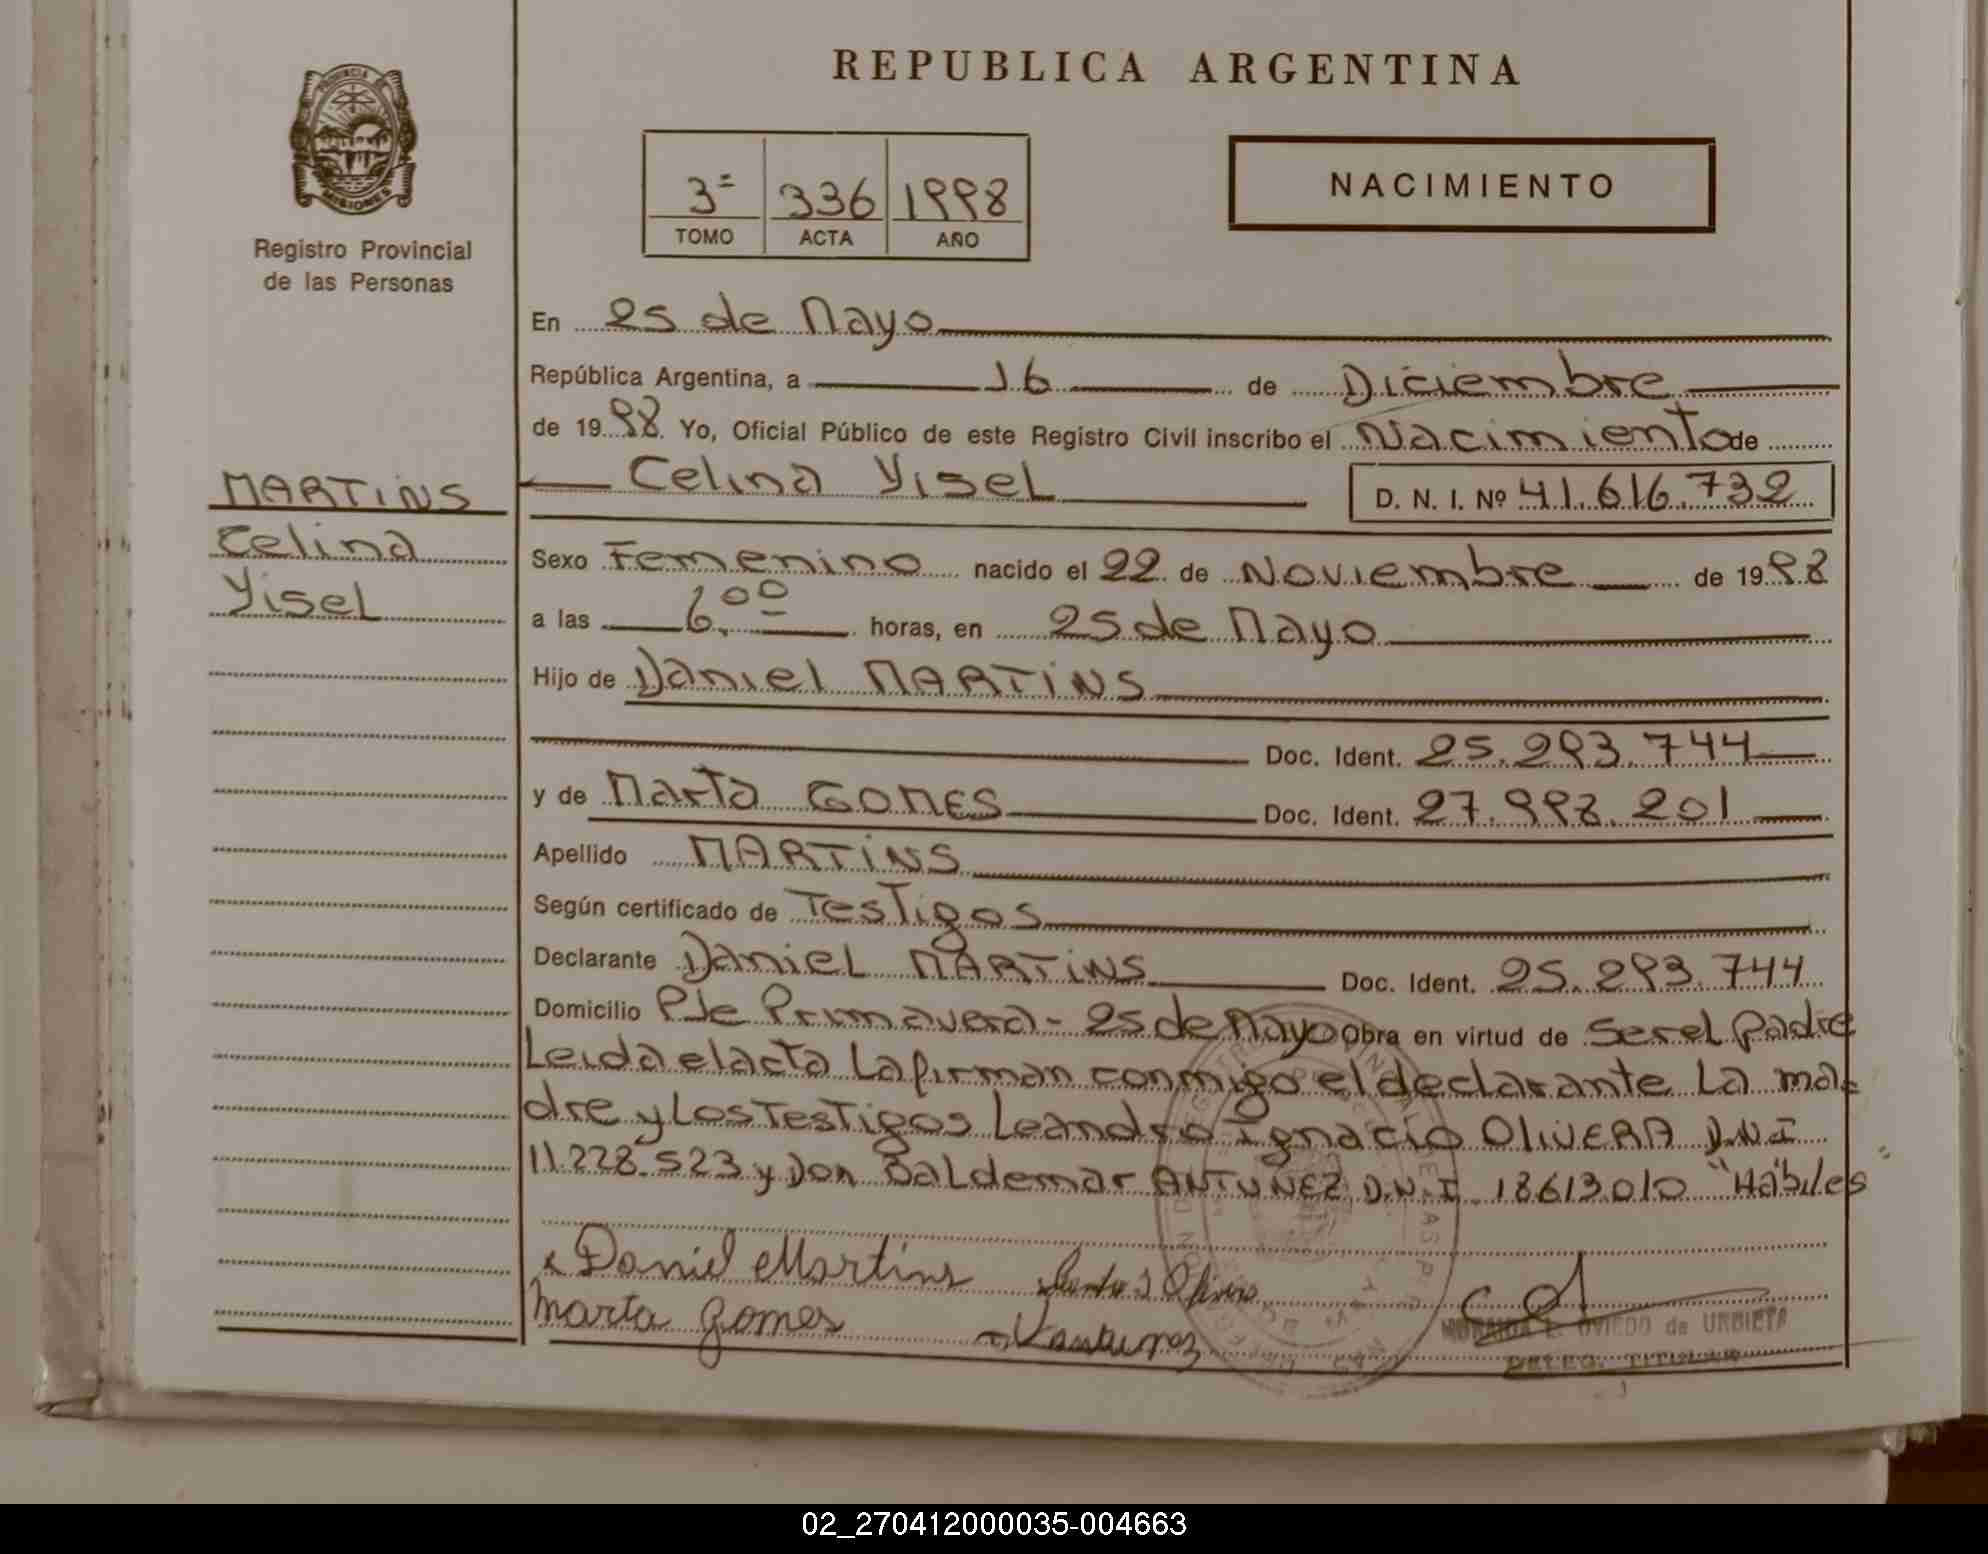 REPUBLICA ARGENTINA
PROVINCIA
MISIONES
Registro Provincial
de las Personas
3ª 336 1998
TOMO ACTA AÑO
NACIMIENTO
En 25 de Mayo
República Argentina, a 16 de Diciembre
de 19 98. Yo, Oficial Público de este Registro Civil inscribo el Nacimiento de
Celina Yisel D. N. I. Nº 41.616.732
MARTiNS
Celina
Yisel
Sexo Femenino nacido el 22 de Noviembre de 19 98
a las 6.00 horas, en 25 de Mayo
Hijo de Daniel MARTiNS
Doc. Ident. 25.293.744
y de Marta GOMES Doc. Ident. 27.998.201
Apellido MARTiNS
Según certificado de Testigos
Declarante DaniEL MARTiNS Doc. Ident. 25.293.744
Domicilio PJe Primavera - 25 de Mayo Obra en virtud de Ser el Padre
Leida el acta La firman conmigo el declarante La ma=
dre y Los Testigos Leandro Ignacio OLiVERA D.N.I
11.228.523 y Don Baldemar ANTUNEZ D.N.I 18613010 "Hábiles"
x Daniel Martins
Marta Gomes
OVIEDO de URBIETA
DELEG. TITULAR
02_270412000035-004663